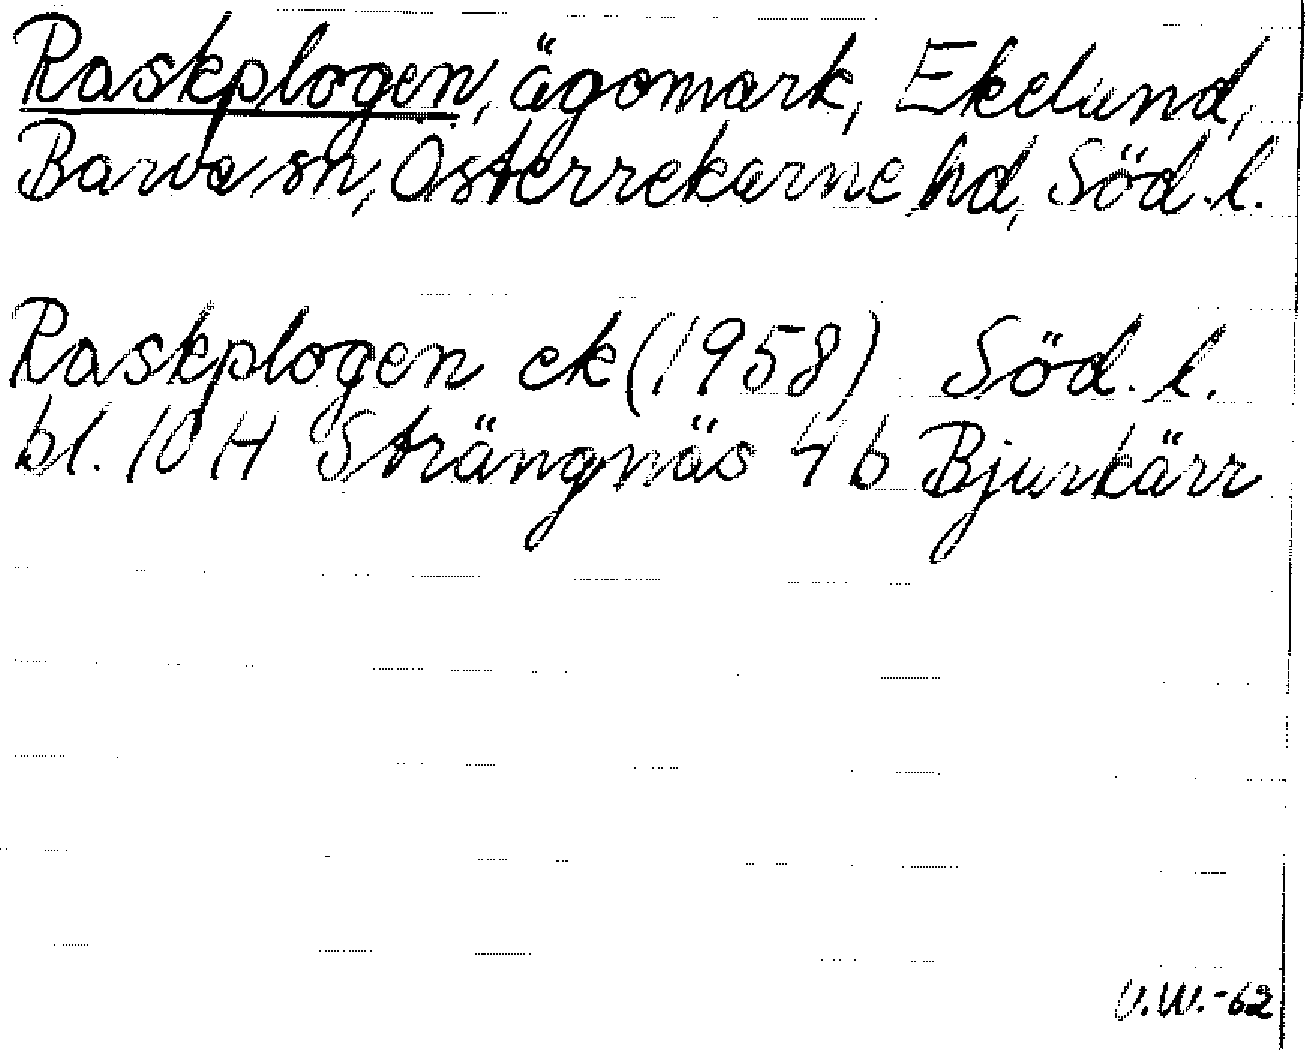 Raskplogen, ägomark, Ekelund,
Barva sn, Österrekarne hd, Söd. l.
Raskplogen ek (1958) Söd. l.
bl. 10 H Strängnäs 4 b Bjurkärr
V.W.-62